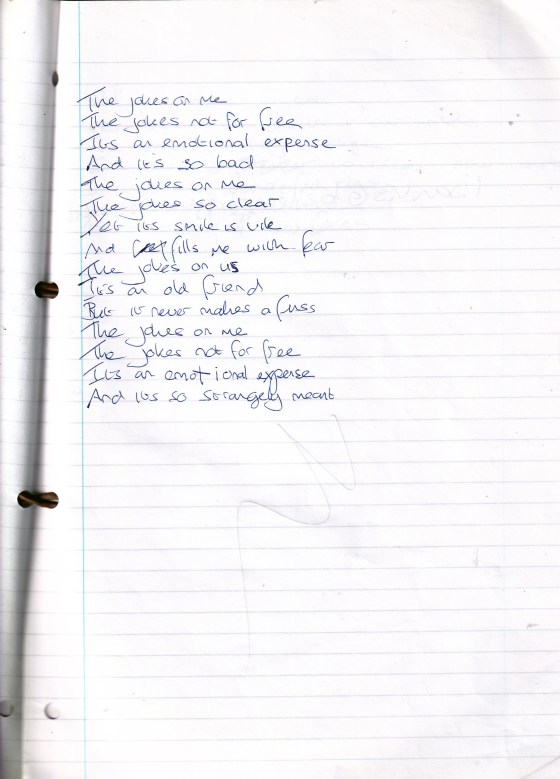 The jokes on me
The jokes not for free
Its an emotional expense
And it's so bad
The jokes on me
The jokes so clear
Yet its smile is vile
And fills me with fear
The jokes on us
It's an old friend
But it never makes a fuss
The jokes on me
The jokes not for free
Its an emotional expense
And its so strangely meant